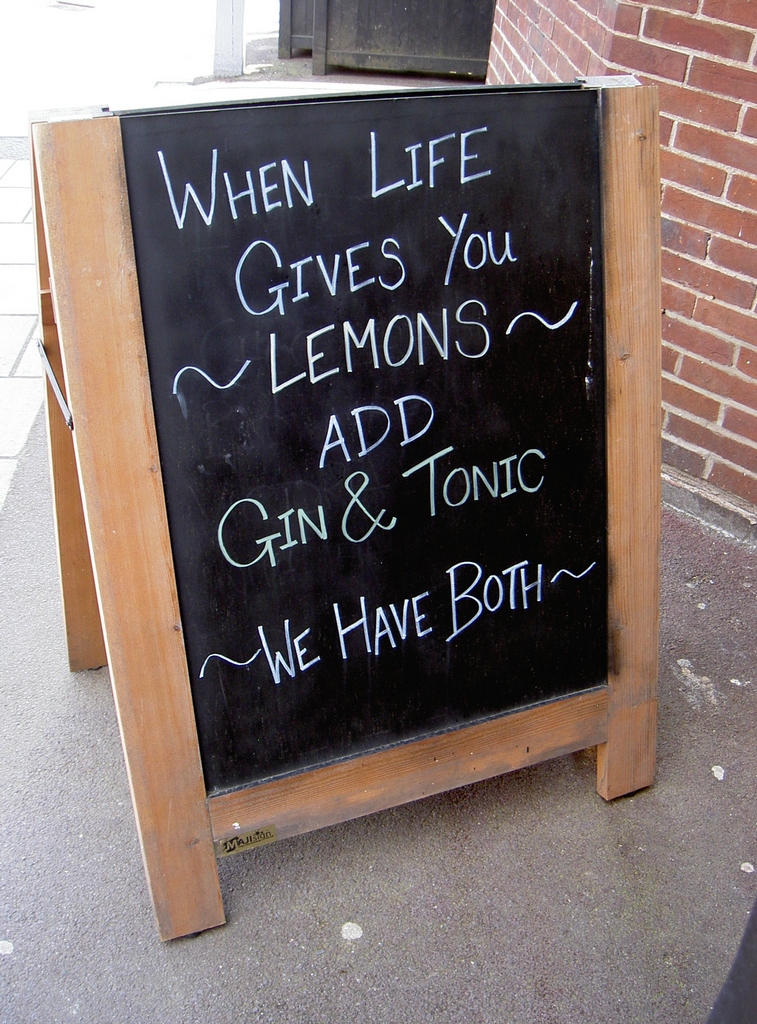 WHEN LIFE
GIVES YOU
~ LEMONS ~
ADD
GIN & TONIC
~ WE HAVE BOTH ~